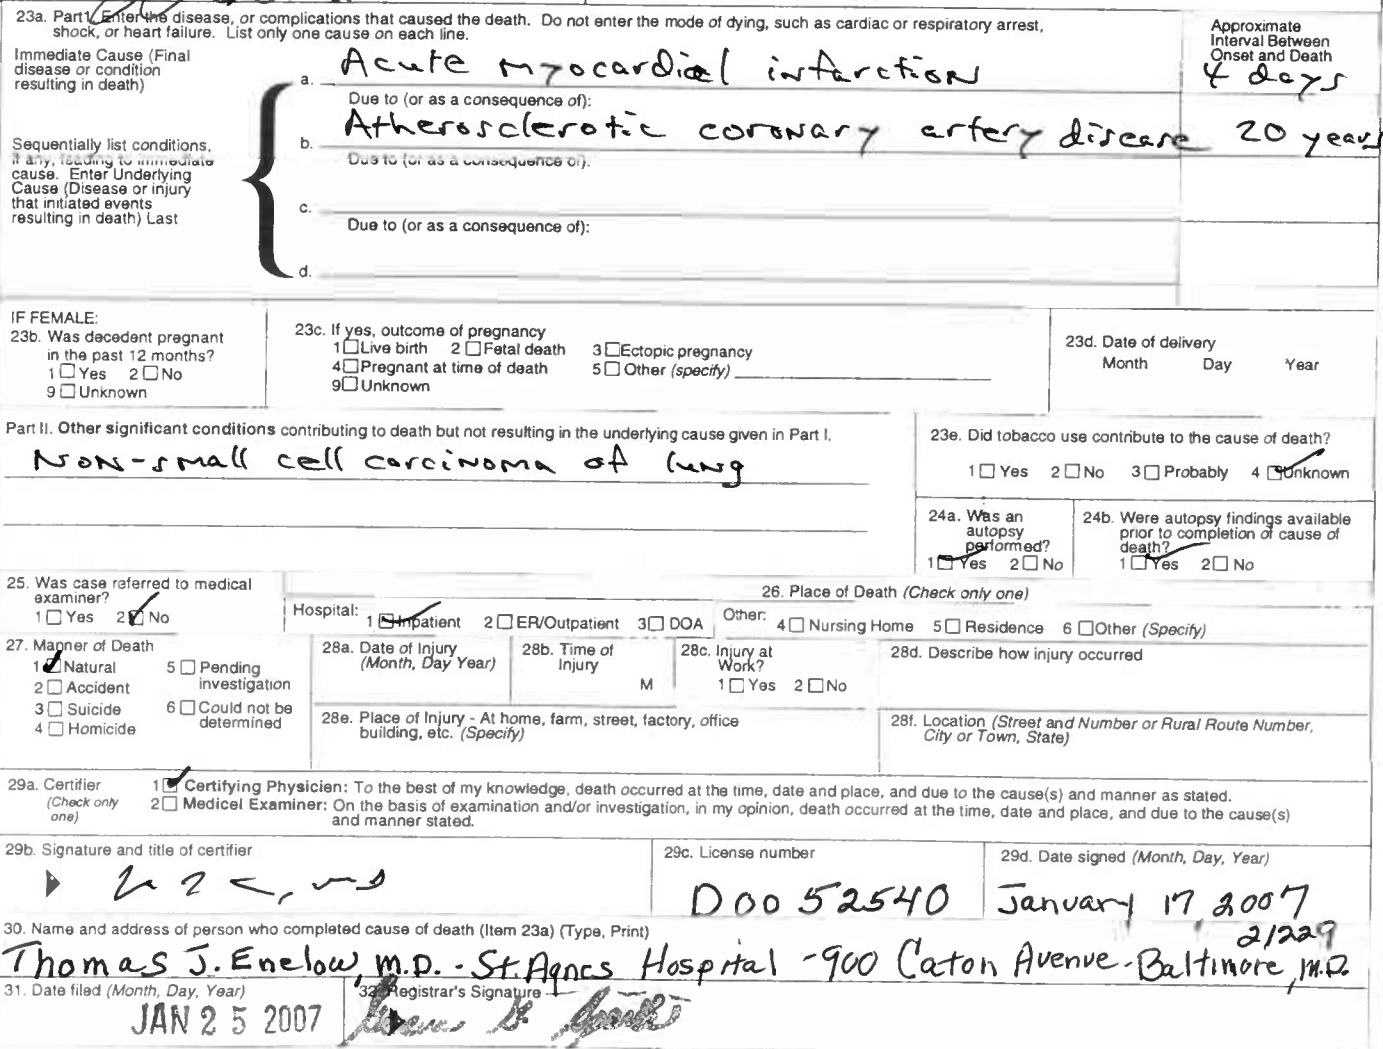 23a. Part I. Enter the disease, or complications that caused the death. Do not enter the mode of dying, such as cardiac or respiratory arrest,
shock, or heart failure. List only one cause on each line.
Approximate
Interval Between
Onset and Death
Immediate Cause (Final
disease or condition
resulting in death)
a. Acute myocardial infarction 4 days
Due to (or as a consequence of):
Sequentially list conditions,
if any, leading to immediate
cause. Enter Underlying
Cause (Disease or injury
that initiated events
resulting in death) Last
b. Atherosclerotic coronary artery disease 20 years
Due to (or as a consequence of):
c.
Due to (or as a consequence of):
d.
IF FEMALE:
23b. Was decedent pregnant
in the past 12 months?
1 Yes 2 No
9 Unknown
23c. If yes, outcome of pregnancy
1 Live birth 2 Fetal death 3 Ectopic pregnancy
4 Pregnant at time of death 5 Other (specify)
9 Unknown
23d. Date of delivery
Month Day Year
Part II. Other significant conditions contributing to death but not resulting in the underlying cause given in Part I.
Non-small cell carcinoma of lung
23e. Did tobacco use contribute to the cause of death?
1 Yes 2 No 3 Probably 4 Unknown
24a. Was an
autopsy
performed?
1 Yes 2 No
24b. Were autopsy findings available
prior to completion of cause of
death?
1 Yes 2 No
25. Was case referred to medical
examiner?
1 Yes 2 No
26. Place of Death (Check only one)
Hospital: 1 Inpatient 2 ER/Outpatient 3 DOA Other: 4 Nursing Home 5 Residence 6 Other (Specify)
27. Manner of Death
1 Natural 5 Pending
investigation
2 Accident
3 Suicide 6 Could not be
determined
4 Homicide
28a. Date of Injury
(Month, Day Year)
28b. Time of
Injury
M
28c. Injury at
Work?
1 Yes 2 No
28d. Describe how injury occurred
28e. Place of Injury - At home, farm, street, factory, office
building, etc. (Specify)
28f. Location (Street and Number or Rural Route Number,
City or Town, State)
29a. Certifier
(Check only
one)
1 Certifying Physician: To the best of my knowledge, death occurred at the time, date and place, and due to the cause(s) and manner as stated.
2 Medical Examiner: On the basis of examination and/or investigation, in my opinion, death occurred at the time, date and place, and due to the cause(s)
and manner stated.
29b. Signature and title of certifier
29c. License number
D0052540
29d. Date signed (Month, Day, Year)
January 17, 2007
30. Name and address of person who completed cause of death (Item 23a) (Type, Print)
21229
Thomas J. Enelow, M.D. - St. Agnes Hospital - 900 Caton Avenue - Baltimore, M.D.
31. Date filed (Month, Day, Year)
JAN 25 2007
32. Registrar's Signature